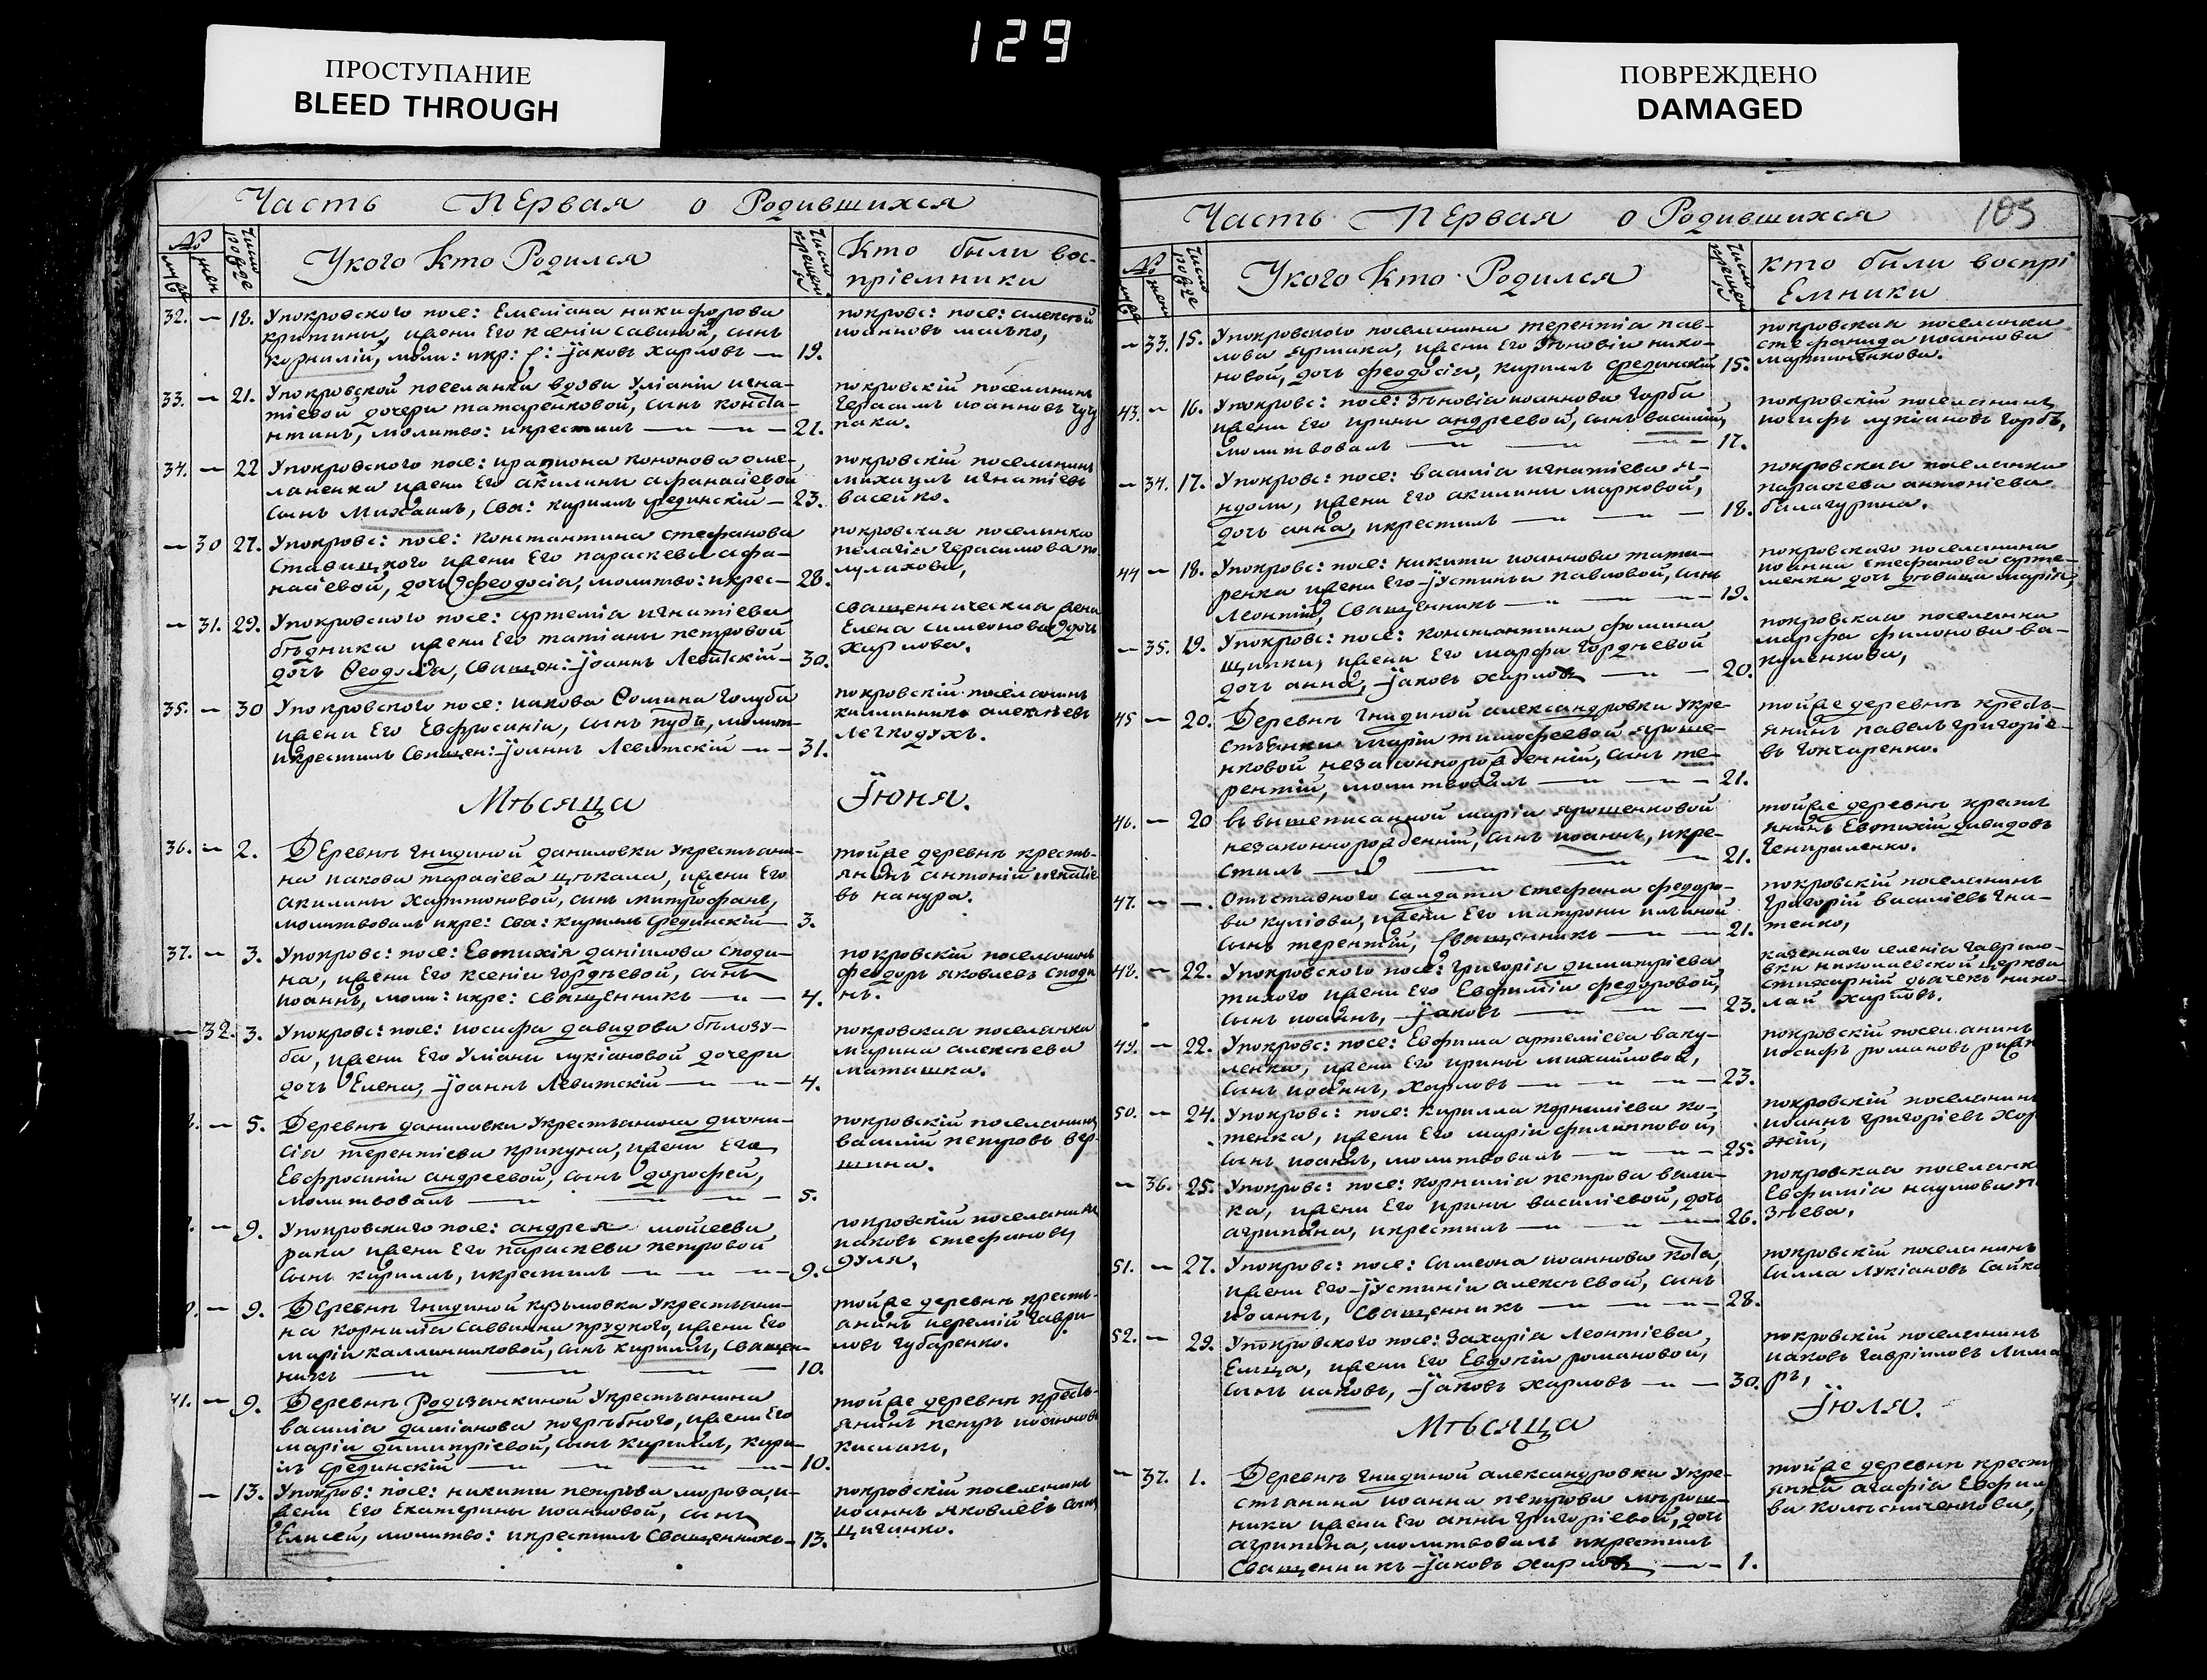 129
ПРОСТУПАНИЕ
BLEED THROUGH
ПОВРЕЖДЕНО
DAMAGED
Часть Первая о Родившихся
№
Число
У кого кто Родился
Число крещен
Кто были вос-
пріемники
32. — 18. У покровского посе: Емеліана никифорова
жены Его ксеніи савиной, сынъ
корнилій, моли: икр: С: Іаковъ Харловъ — 19.
покровс: посе: алексѣй
иоанновъ малько,
33. — 21. У покровской поселанки вдовы Уліаніи игна-
тіевой дочери татаренковой, сынъ конста-
нтинъ, молитво: икрестилъ — 21.
покровскій поселанинъ
Герасимъ иоанновъ
34. — 22 У покровского посе: кононова оме-
ланенка жены Его акилины афанасіевой
сынъ Михаилъ, Свя: кириллъ фединскій — 23.
покровскій поселанинъ
михаилъ игнатіевъ
васейко.
— 30 27. У покровс: посе: константина стефанова
ставицкого жены Его параскевы афа-
насіевой, дочь феодосіа, молитво: икрес — 28.
покровская поселанка
пелагіа Герасимова
— 31. 29. У покровского посе: артеміа игнатіева
бѣдника жены Его татіаны петровой
дочь Феодосіа, Свящеи: Іоаннъ Левитскій — 30.
священническая жена
Елена симеонова
Харлова.
35. — 30 У покровского посе: иакова Фомина Голуба
жены Его Евфросиніи, сынъ
икрестилъ Священ: Іоаннъ Левитскій — 31.
покровскій поселанинъ
каллинникъ алексѣевъ
легкодухъ.
Мѣсяца Іюня.
36. — 2. Деревнѣ Гнидиной даниловки Укрестьани-
на иакова тарасіева цѣкала, жены Его
акилины Харитоновой, сынъ митрофанъ,
молитвовалъ икре: Свя: кириллъ фединскій — 3.
тойже деревнѣ кресть-
янинъ антоній игнатіе-
въ канура.
37. — 3. У покровс: посе: Евтихіа даніилова споди-
на, жены Его ксеніи гордѣевой, сынъ
иоаннъ, моли: икре: священникъ — 4.
покровскій поселанинъ
феодоръ яковлевъ споди
нъ.
— 32. 3. У покровс: посе: иосифа давидова бѣлозу-
ба, жены Его Уліаны лукіановой дочери
дочь Елена, Іоаннъ Левитскій — 4.
покровская поселанка
марина алексѣева
маташка.
— 5. Деревнѣ даниловки Укрестьанина диони-
сіа терентіева крикуна, жены Его
Евфросиніи андреевой, сынъ дорофей,
молитвовалъ — 5.
покровскій поселанинъ
василій петровъ вер-
шина.
— 9. У покровского посе: андрея моисеева
рака жены Его параскевы петровой
сынъ кириллъ, икрестилъ — 9.
покровскій поселанинъ
иаковъ стефановъ
дуля,
— 9. Деревнѣ Гнидиной кузьмовки Укрестьани-
на корниліа саввина прудкого, жены Его
маріи каллинниковой, сынъ кириллъ, священ-
никъ — 10.
тойже деревнѣ кресть-
анинъ иеремій Гаври-
ловъ Губаренко.
41. — 9. Деревнѣ Родзянкиной Укрестьанина
василіа даміанова погрѣбного, жены Его
маріи димитріевой, сынъ кириллъ, кири-
лъ фединскій — 10.
тойже деревнѣ кресть-
янинъ петръ иоанновъ
кислакъ,
— 13. У покров: посе: никиты петрова мороза, ж-
жены Его Екатерины иоанновой, сынъ
Елисей, молитво: икрестилъ Священникъ — 13.
покровскій поселанинъ
иоаннъ яковлевъ
цыганко.
Часть Первая о Родившихся 105
№
Число
У кого кто Родился
Число крещен
кто были воспрі
Емники
— 33. 15. У покровского поселанина терентіа пав-
лова ярмака, жены Его Зѣновіи нико-
новой, дочь феодосіа, кириллъ фединскій 15.
покровская поселанка
стефанида иоаннова
мартиненкова.
43. — 16. У покровс: посе: Зѣновіа иоаннова Горба
жены Его ирины андреевой, сынъ василій,
молитвовалъ — 17.
покровскій поселанинъ
иосифъ лукіановъ Горбъ,
— 34. 17. У покровс: посе: василіа игнатіева я-
ндоли, жены Его акилины марковой,
дочь анна, икрестилъ — 18.
покровская поселанка
параскева антоніева
балагурина.
44 — 18. У покровс: посе: никиты иоаннова тата-
ренка жены Его Іустиньи павловой, сынъ
Леонтій, Священникъ — 19.
покровского поселанина
иоанна стефанова арте-
менка дочь дѣвица марія,
— 35. 19. У покровс: посе: константина фомина
щипки, жены Его марфы Гордѣевой
дочь анна, Іаковъ Харловъ — 20.
покровская поселанка
марфа филонова ва-
куленкова,
45 — 20. Деревнѣ Гнидиной александровки Укре-
стьянки маріи тимофеевой яроше-
нковой незаконнорожденній, сынъ те-
рентій, молитвовалъ — 21.
тойже деревнѣ кресть-
янинъ павелъ григоріе-
въ Гончаренко.
46. — 20 вышеписанной маріи ярошенковой
незаконнорожденній, сынъ иоаннъ, икре-
стилъ — 21.
тойже деревнѣ кресть
янинъ Евтихій давидовъ
47. — —. Отставного салдата стефана федоро-
ва куліова, жены Его матроны ильиной
сынъ терентій, Священникъ — 21.
покровскій поселанинъ
Григорій василіевъ Гна-
тенко,
48. — 22. У покровского посе: Григоріа димитріева
тихого жены Его Евфиміи федоровой,
сынъ иоаннъ, Іаковъ — 23.
казенного селеніа Гаврило-
вки николаевской церкви
стихарній дьячекъ нико-
лай Харловъ.
49. — 22. У покровс: посе: Евфима артеміева ваку-
ленка, жены Его ирины михайловой,
сынъ иоаннъ, Харловъ — 23.
покровскій поселанинъ
иосифъ романовъ
50. — 24. У покровс: посе: кирилла корниліева ко-
тенка, жены Его маріи филипповой,
сынъ иоаннъ, молитвовалъ — 25.
покровскій поселанинъ
иоаннъ Григоріевъ
— 36. 25. У покровс: посе: корниліа петрова вали-
ка, жены Его ирины василіевой, дочь
агрипина, икрестилъ — 26.
покровская поселанк
Евфиміа наумова
51. — 27. У покровс: посе: симеона иоаннова кота,
жены Его Іустиніи алексѣевой, сынъ
иоаннъ, Священникъ — 28.
покровскій поселанинъ
Силла Лукіановъ Сайко
52. — 29. У покровского посе: Захаріа Леонтіева,
Емца, жены Его Евдокіи романовой,
сынъ иаковъ, Іаковъ Харловъ — 30.
покровскій поселанинъ
иаковъ Гавріиловъ Лима
ръ,
Мѣсяца Іюля.
— 37. 1. Деревнѣ Гнидиной александровки Укре-
стьанина иоанна петрова мѣрош-
ника жены Его анны григоріевой, дочь
агрипина, молитвовалъ икрестилъ
Священникъ Іаковъ Харловъ — 1.
тойже деревнѣ кресть
янка агафіа Евфимо
ва колѣсниченкова,